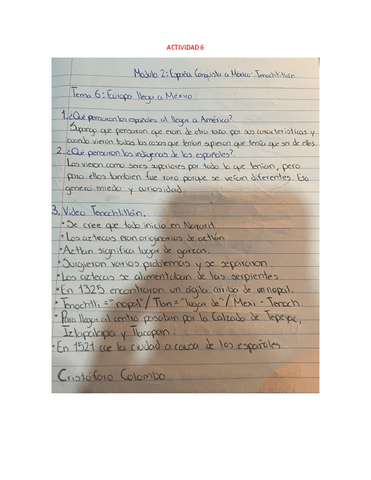 ACTIVIDAD 6
Modulo 2: España Conquista a México-Tenochtitlán
Tema 6: Europa llega a México.
1. ¿Qué pensaron los españoles al llegar a América?
Supongo que pensaron que eran de otra raza por sus características y
cuando vieron todas las cosas que tenían supieron que tenía que ser de ellos.
2. ¿Que pensaron los indígenas de los españoles?
Los vieron como seres superiores por todo lo que tenían, pero
para ellos también fue raro porque se veían diferentes. Eso
generó miedo y curiosidad.
3. Video Tenochtitlán.
• Se cree que todo inicio en Nayarit
• Los aztecas eran originarios de aztlán
• Aztlan significa lugar de garzas.
• Surgieron varios problemas y se separaron.
• Los aztecas se alimentaban de las serpientes
• En 1325 encontraron un águila arriba de un nopal.
• Tenochtli = "nopal" / Tlan = "lugar de" / Mexi - Tenoch
• Para llegar al centro pasaban por la Calzada de Tepeyac,
Iztapalapa y Tlacopan.
• En 1521 cae la ciudad a causa de los españoles
Cristóforo Colombo